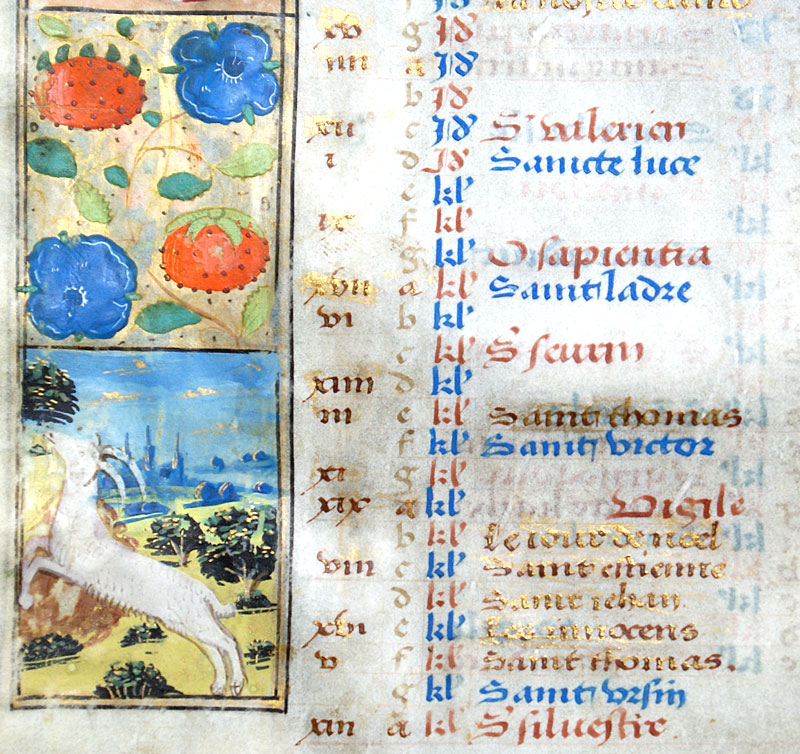 xv g Id
iiii a Id
b Id
xii c Id S valerien
i d Id Sancte luce
e kl
ix f kl
g kl O sapientia
xvii a kl Saint ladre
vi b kl
c kl S seurin
xiiii d kl
iii e kl Saint thomas
f kl Saint victor
xi g kl
xix a kl Vigile
b kl Le iour de noel
viii c kl Saint estienne
d kl Saint iehan
xvi e kl Les innocens
v f kl Saint thomas.
g kl Saint vrsin
xiii a kl S siluestre.